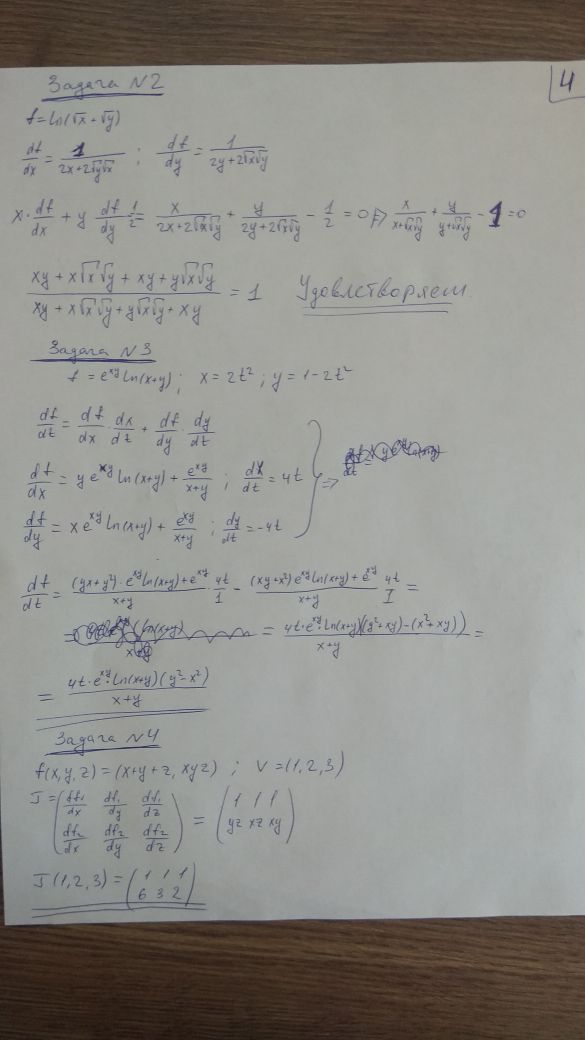 4
Задача N2
f = ln(√x + √y)
df/dx = 1/(2x+2√y√x) ; df/dy = 1/(2y+2√x√y)
x · df/dx + y df/dy = 1/2 = x/(2x+2√x√y) + y/(2y+2√x√y) - 1/2 = 0 => x/(x+√x√y) + y/(y+√x√y) - 1 = 0
(xy + x√x√y + xy + y√x√y)/(xy + x√x√y + y√x√y + xy) = 1 Удовлетворяет.
Задача N3
f = e^xy ln(x+y) ; x = 2t² ; y = 1-2t²
df/dt = df/dx · dx/dt + df/dy · dy/dt
df/dx = y e^xy ln(x+y) + e^xy/(x+y) ; dx/dt = 4t =>
df/dy = x e^xy ln(x+y) + e^xy/(x+y) ; dy/dt = -4t
df/dt = ((yx+y²) · e^xy ln(x+y) + e^xy)/(x+y) · 4t/1 - ((xy+x²) e^xy ln(x+y) + e^xy)/(x+y) · 4t/1 =
= (4t · e^xy · ln(x+y)((y²+xy) - (x²+xy)))/(x+y) =
= (4t · e^xy · ln(x+y)(y²-x²))/(x+y)
Задача N4
f(x,y,z) = (x+y+z, xyz) ; v = (1,2,3)
J = (df₁/dx df₁/dy df₁/dz
df₂/dx df₂/dy df₂/dz) = (1 1 1
yz xz xy)
J(1,2,3) = (1 1 1
6 3 2)